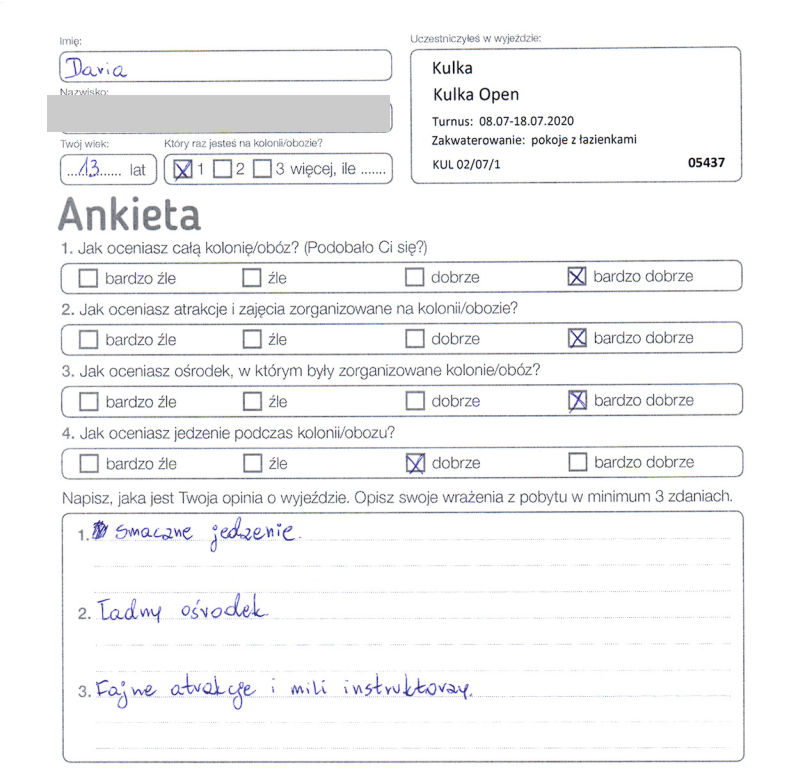 Imię:
Daria
Nazwisko:
Twój wiek:
13 lat
Który raz jesteś na kolonii/obozie?
1 2 3 więcej, ile .......
Uczestniczyłeś w wyjeździe:
Kulka
Kulka Open
Turnus: 08.07-18.07.2020
Zakwaterowanie: pokoje z łazienkami
KUL 02/07/1 05437
Ankieta
1. Jak oceniasz całą kolonię/obóz? (Podobało Ci się?)
bardzo źle źle dobrze bardzo dobrze
2. Jak oceniasz atrakcje i zajęcia zorganizowane na kolonii/obozie?
bardzo źle źle dobrze bardzo dobrze
3. Jak oceniasz ośrodek, w którym były zorganizowane kolonie/obóz?
bardzo źle źle dobrze bardzo dobrze
4. Jak oceniasz jedzenie podczas kolonii/obozu?
bardzo źle źle dobrze bardzo dobrze
Napisz, jaka jest Twoja opinia o wyjeździe. Opisz swoje wrażenia z pobytu w minimum 3 zdaniach.
1. smaczne jedzenie.
2. Ładny ośrodek
3. Fajne atrakcje i mili instruktorzy.